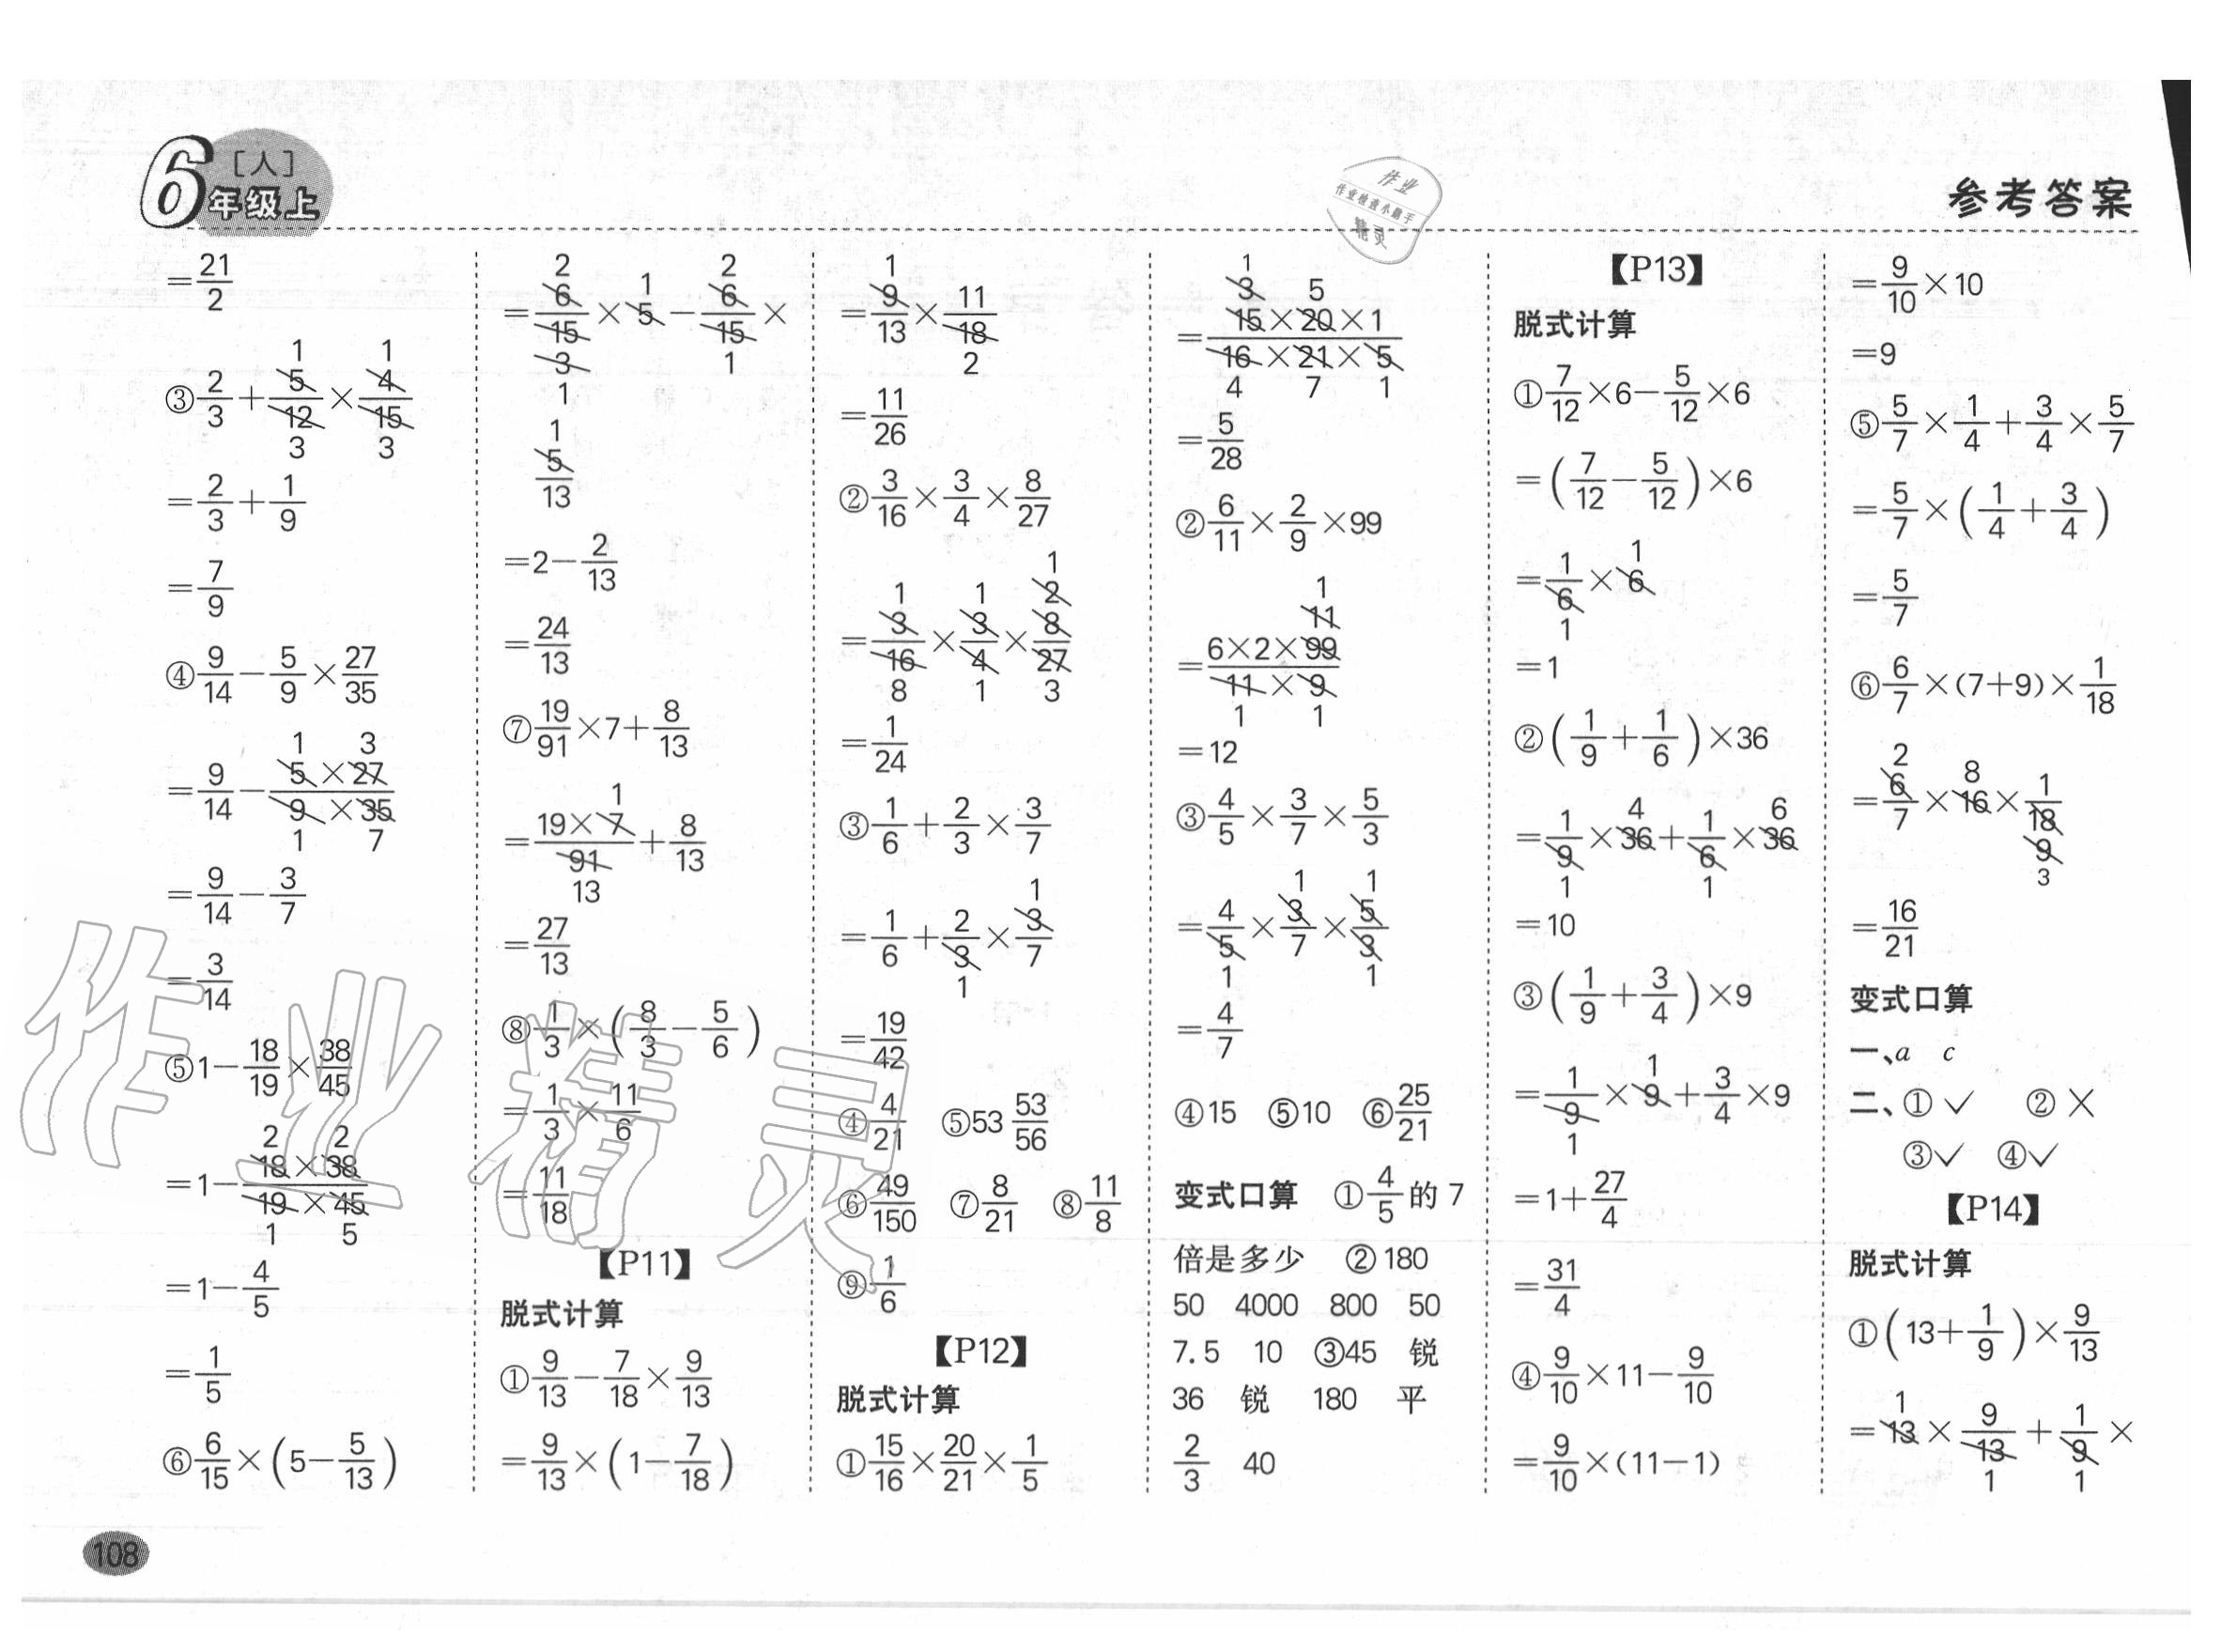 6年级上 [人]
作业
作业检查小助手
精灵
参考答案
=21/2
③2/3+5/12×4/15 (1 1 3 3)
=2/3+1/9
=7/9
④9/14-5/9×27/35
=9/14-(5×27)/(9×35) (1 3 1 7)
=9/14-3/7
=3/14
⑤1-18/19×38/45
=1-(18×38)/(19×45) (2 2 1 5)
=1-4/5
=1/5
⑥6/15×(5-5/13)
=6/15×5-6/15× (2 1 2 3 1 1)
5/13 (1)
=2-2/13
=24/13
⑦19/91×7+8/13
=(19×7)/91+8/13 (1 13)
=27/13
⑧1/3×(8/3-5/6)
=1/3×11/6
=11/18
【P11】
脱式计算
①9/13-7/18×9/13
=9/13×(1-7/18)
=9/13×11/18 (1 2)
=11/26
②3/16×3/4×8/27
=3/16×3/4×8/27 (1 1 1 2 8 1 3)
=1/24
③1/6+2/3×3/7
=1/6+2/3×3/7 (1 1)
=19/42
④4/21 ⑤53 53/56
⑥49/150 ⑦8/21 ⑧11/8
⑨1/6
【P12】
脱式计算
①15/16×20/21×1/5
=(15×20×1)/(16×21×5) (1 3 5 4 7 1)
=5/28
②6/11×2/9×99
=(6×2×99)/(11×9) (1 11 1 1)
=12
③4/5×3/7×5/3
=4/5×3/7×5/3 (1 1 1 1)
=4/7
④15 ⑤10 ⑥25/21
变式口算 ①4/5的7
倍是多少 ②180
50 4000 800 50
7.5 10 ③45 锐
36 锐 180 平
2/3 40
【P13】
脱式计算
①7/12×6-5/12×6
=(7/12-5/12)×6
=1/6×6 (1 1)
=1
②(1/9+1/6)×36
=1/9×36+1/6×36 (4 6 1 1)
=10
③(1/9+3/4)×9
=1/9×9+3/4×9 (1 1)
=1+27/4
=31/4
④9/10×11-9/10
=9/10×(11-1)
=9/10×10
=9
⑤5/7×1/4+3/4×5/7
=5/7×(1/4+3/4)
=5/7
⑥6/7×(7+9)×1/18
=6/7×16×1/18 (2 8 9 3)
=16/21
变式口算
一、a c
二、①✓ ②×
③✓ ④✓
【P14】
脱式计算
①(13+1/9)×9/13
=13×9/13+1/9× (1 1 1)
108
作业精灵